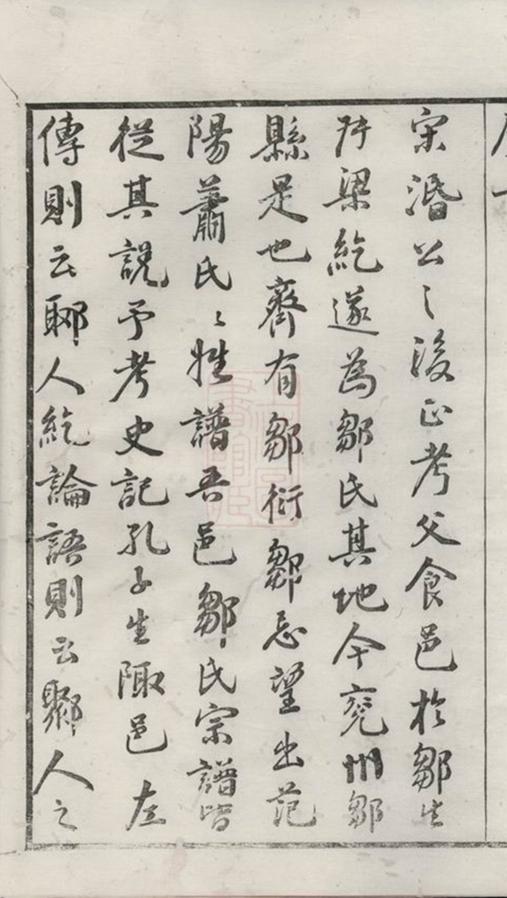 宋湣公之後正考父食邑於鄒生
叔梁紇遂為鄒氏其地今兗州鄒
縣是也齊有鄒衍鄒忌望出范
陽蕭氏〻姓譜吾邑鄒氏宗譜皆
從其說予考史記孔子生陬邑左
傳則云郰人紇論語則云鄹人之